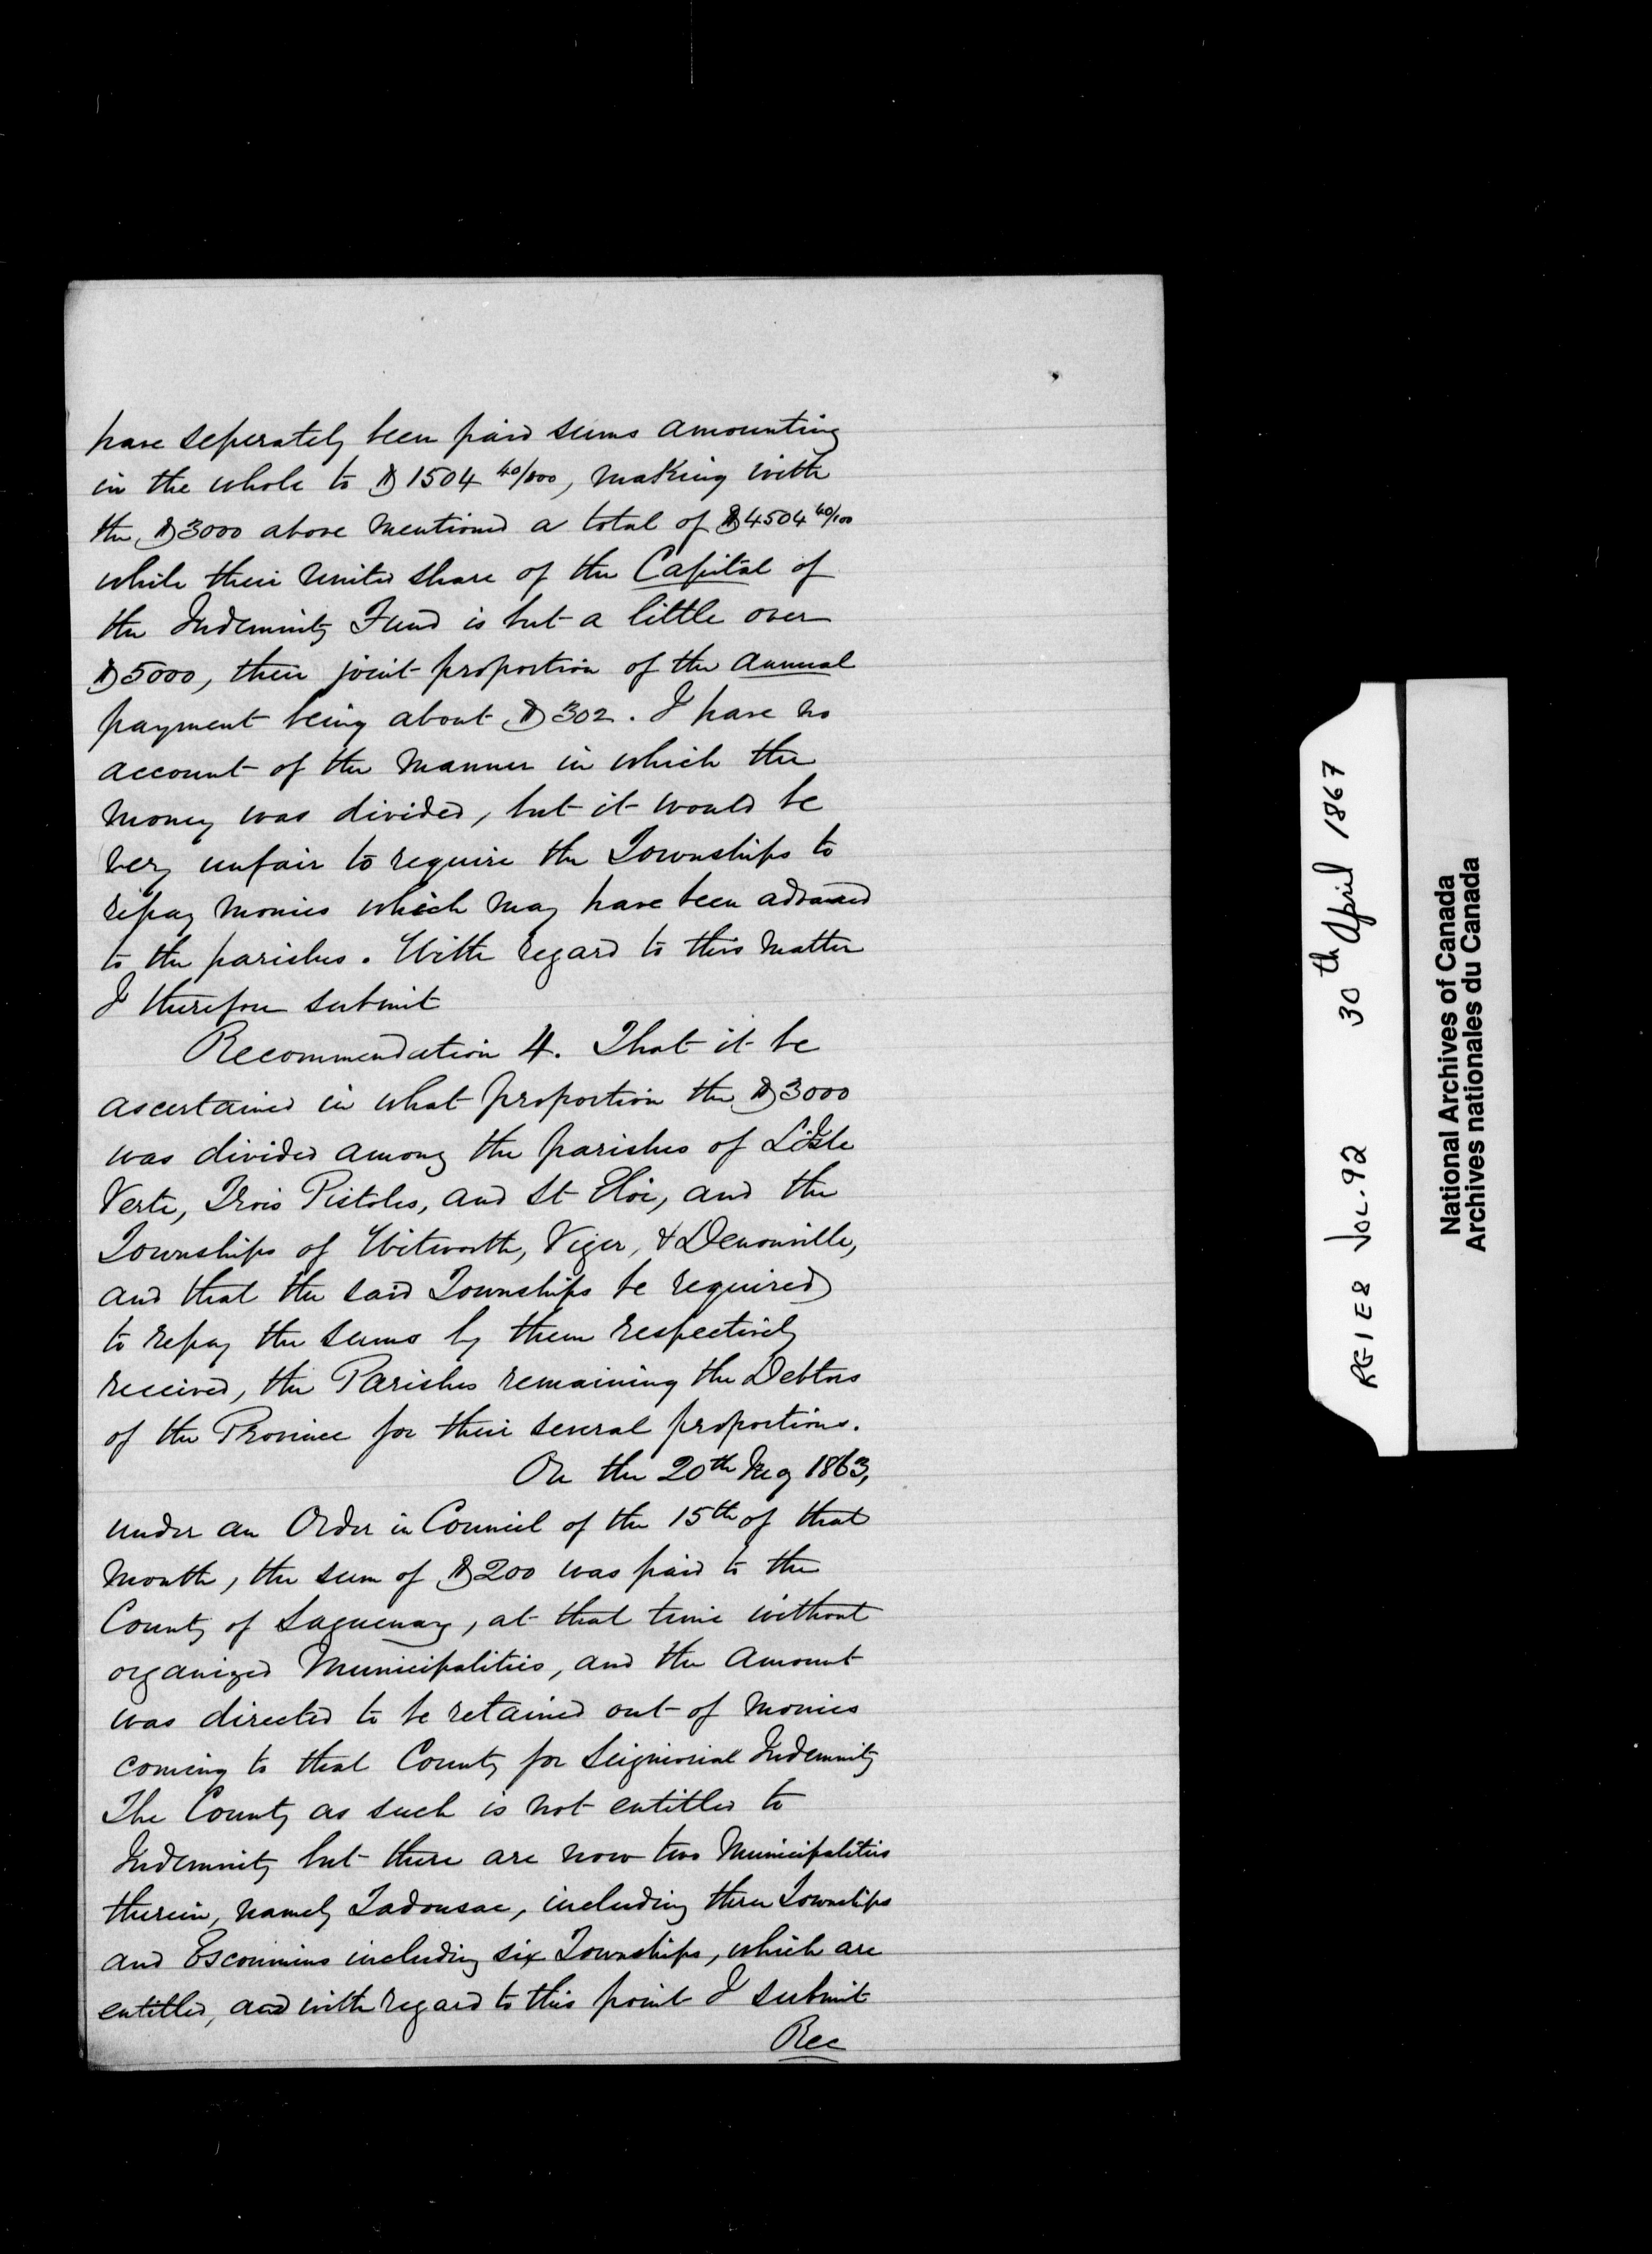 have seperately been paid sums amounting
in the whole to $1504 40/100, making with
the $3000 above mentioned a total of $4504 40/100
while their united share of the Capital of
the Indemnity Fund is but a little over
$5000, their joint proportion of the annual
payment being about $302. I have no
account of the manner in which the
money was divided, but it would be
very unfair to require the Townships to
repay monies which may have been advanced
to the parishes. With regard to this matter
I therefore submit
Recommendation 4. That it be
ascertained in what proportion the $3000
was divided among the parishes of L'Isle
Verte, Trois Pistoles, and St Eloi, and the
Townships of Witworth, Viger, & Denonville,
and that the said Townships be required
to repay the sums by them respectively
received, the Parishes remaining the Debtors
of the Province for their several proportions.
On the 20th May 1863,
under an Order in Council of the 15th of that
month, the sum of $200 was paid to the
County of Saguenay, at that time without
organized Municipalities, and the amount
was directed to be retained out of monies
coming to that County for Seigniorial Indemnity
The County as such is not entitled to
Indemnity but there are now two Municipalities
therein, namely Tadousac, including three Townships
and Escoumins including six Townships, which are
entitled, and with regard to this point I submit
Rec
RG1E8 VOL.92 30th April 1867
National Archives of Canada
Archives nationales du Canada